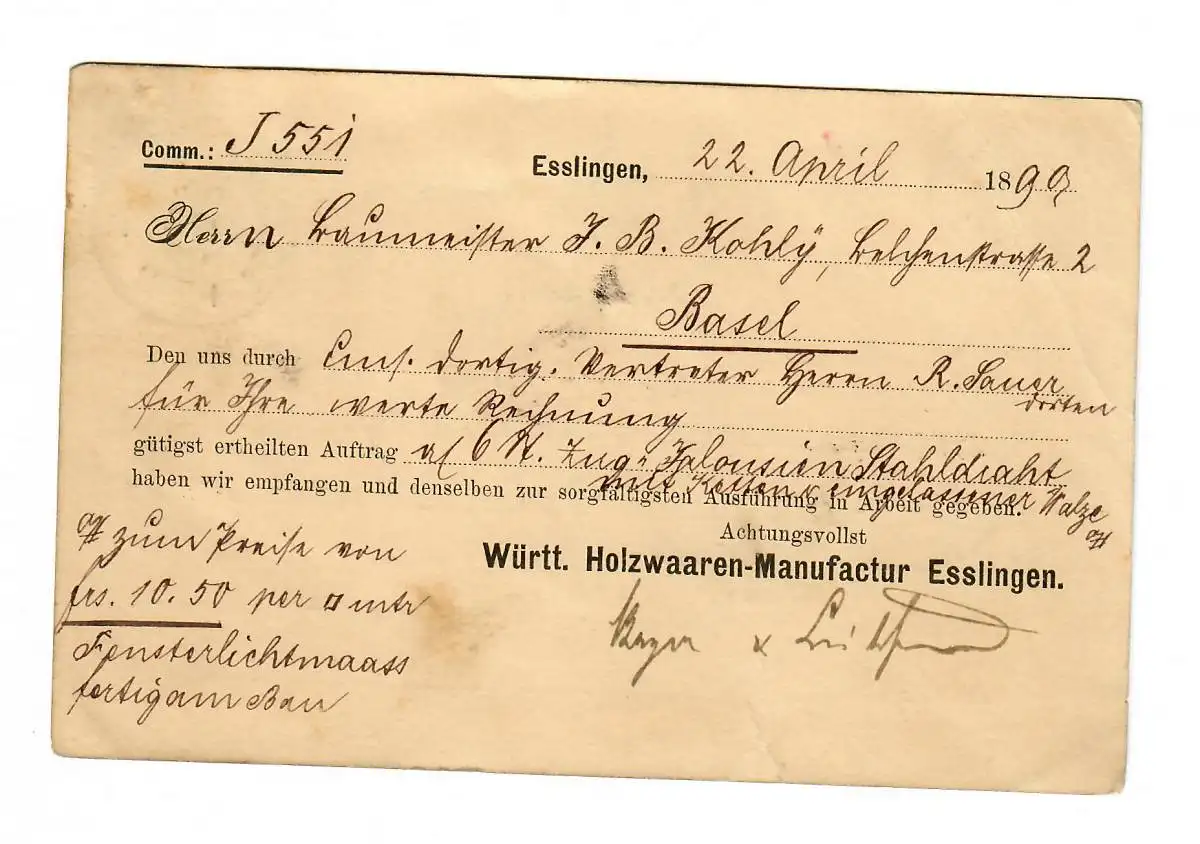 Comm.: J 551
Esslingen, 22. April 1890
Herrn Baumeister J. B. Kohly, Belchenstrasse 2
Basel
Den uns durch uns. dortig. Vertreter Herrn R. Sauer
dorten
für Ihre werte Rechnung
gütigst ertheilten Auftrag a/ 6 St. Zug-Jalousien Stahldraht
mit Ketten & eingelassener Walze
haben wir empfangen und denselben zur sorgfältigsten Ausführung in Arbeit gegeben.
Achtungsvollst
Württ. Holzwaaren-Manufactur Esslingen.
zum Preise von
frs. 10.50 per □ mtr
Fensterlichtmaass
fertig am Bau